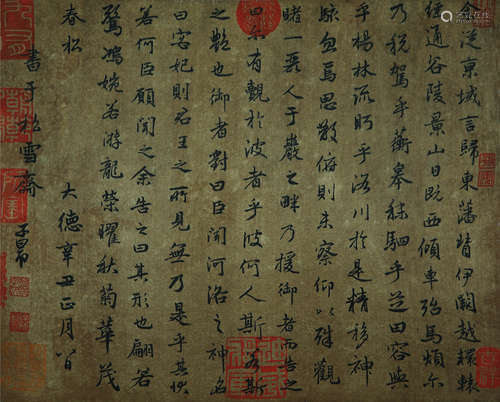 余從京城言歸東藩背伊闕越轘轅
經通谷陵景山日既西傾車殆馬煩尔
乃税駕乎蘅皋秣駟乎芝田容與
乎楊林流眄乎洛川於是精移神
駭忽焉思散俯則未察仰以殊觀
睹一麗人于巖之畔乃援御者而告之
曰尔有覿於彼者乎彼何人斯若斯
之艷也御者對曰臣聞河洛之神名
曰宓妃則君王之所見無乃是乎其狀
若何臣願聞之余告之曰其形也翩若
驚鴻婉若游龍榮曜秋菊華茂
春松
大德辛丑正月
書于松雪齋
子昂